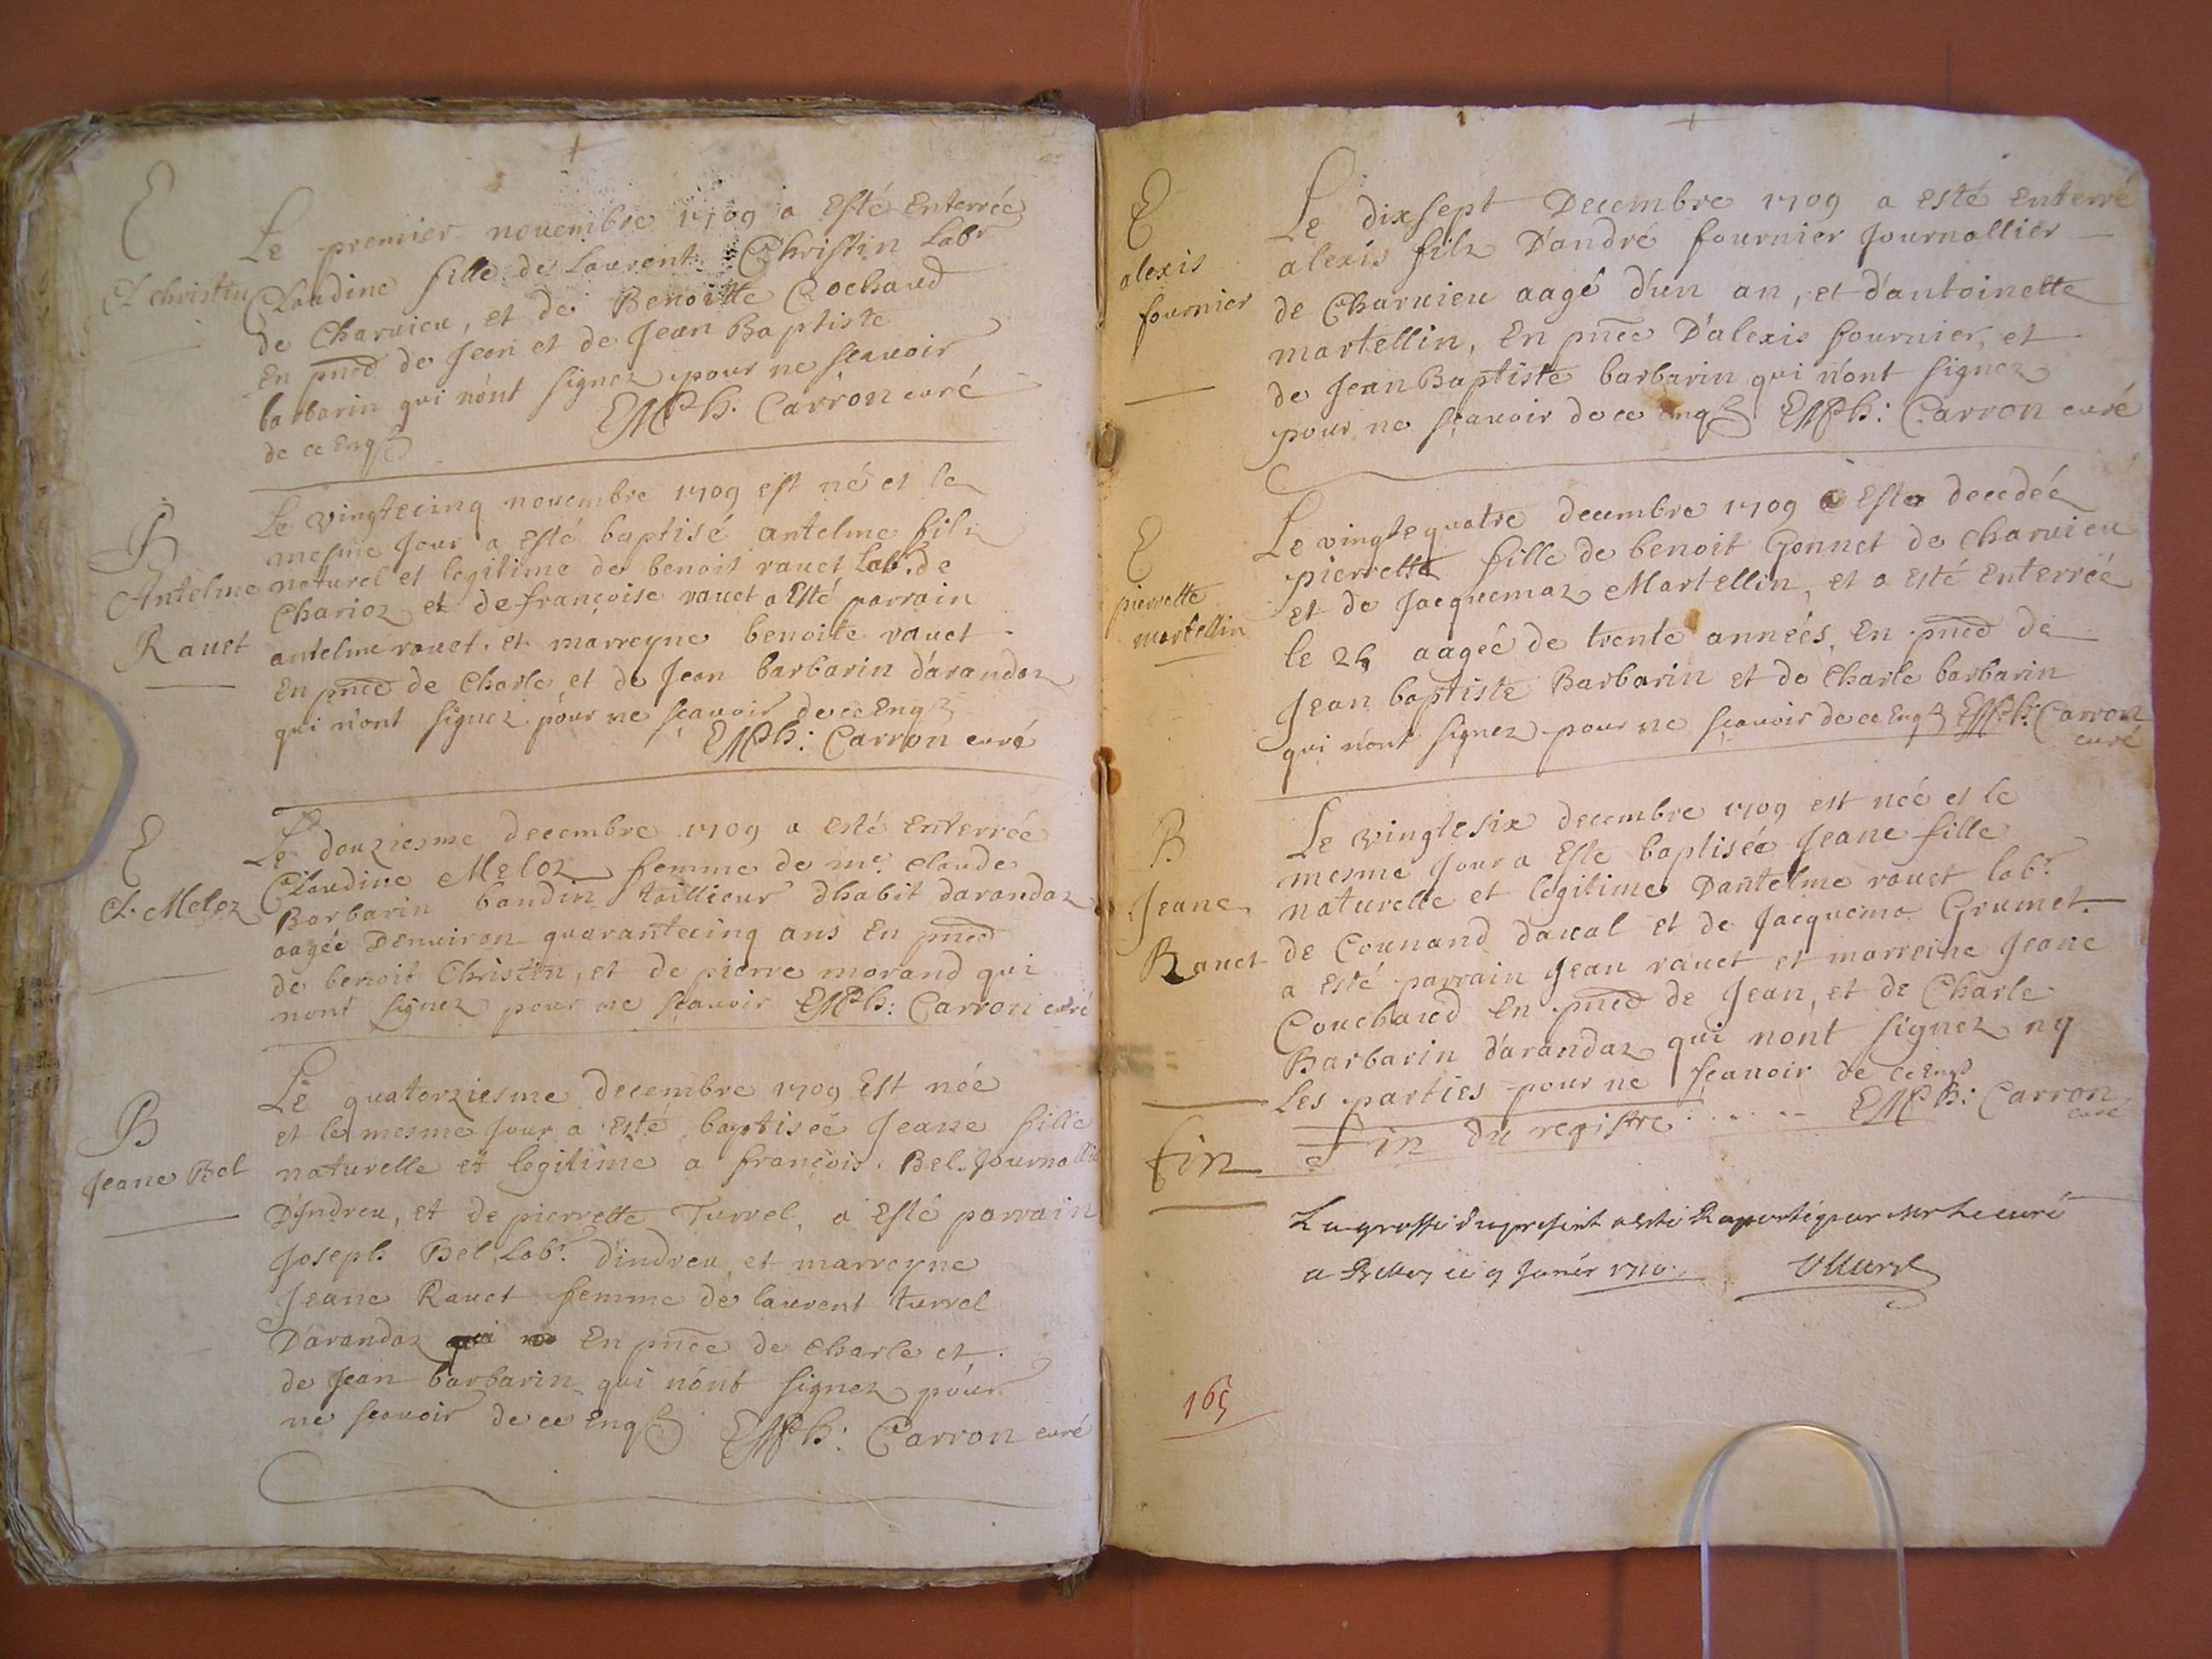 E
Cl christin
Le premier novembre 1709 a Esté Enterrée
Claudine fille de Laurent Christin Labr
de Charvieu, et de Benoitte Cochaud
En pnce de Jean et de Jean Baptiste
barbarin qui n'ont signez pour ne scavoir
de ce Enqs EMPh. Carron curé
B
Antelme
Ravet
Le vingtecinq novembre 1709 est né et le
mesme Jour a esté baptisé antelme filz
naturel et legitime de benoit ravet Labr. de
Charioz et de françoise ravet a Esté parrain
antelme ravet. et marreyne benoite ravet.
En pnce de Charle et de Jean barbarin d'arandaz
qui n'ont signez pour ne sçavoir de ce Enqs
EMPh: Carron curé
E
Cl. Meloz
Le douziesme decembre 1709 a esté enterrée
Claudine Meloz femme de me. claude
Barbarin baudin taillieur dhabit darandaz
aagée Denviron quarantecinq ans En pnce
de benoit Christin, et de pierre morand qui
nont signez pour ne scavoir EMPh: Carron curé
B
Jeane Bel
Le quatorziesme decembre 1709 Est née
et le mesme Jour a Esté baptisée Jeane fille
naturelle et legitime a françois Bel Journallier
D'Indreu, et de pierrette Turrel, a Esté parrain
Joseph Bel Labr. d'indreu, et marreyne
Jeane Ravet femme de laurent turrel
D'arandaz qui no En pnce de Charle et
de Jean barbarin qui n'ont signez pour
ne scavoir de ce Enqs EMPh: Carron curé
E
alexis
fournier
Le dixsept Decembre 1709 a esté enterré
alexis filz D'andré fournier Journallier
de Charvieu aagé d'un an, et d'antoinette
martellin, En pnce D'alexis fournier, et
de Jean Baptiste barbarin qui n'ont signez
pour ne sçavoir de ce enqs EMPh: Carron curé
E
pierrette
martellin
Le vingtequatre decembre 1709 a Este decedée
pierrette fille de benoit Gonnet de charvieu
et de Jacquemaz Martellin, et a esté enterrée
le 25 aagée de trente années, En pnce de
Jean baptiste Barbarin et de Charle barbarin
qui n'ont signez pour ne scavoir de ce Enqs EMPh: Carron
curé
B
Jeane
Ravet
Le vingtesix decembre 1709 est née et le
mesme Jour a Este baptisée Jeane fille
naturelle et legitime Dantelme ravet labr.
de Counand daval et de Jacquema Grumet.
a esté parrain Jean ravet et marreine Jeane
Couchaud En pnce de Jean, et de Charle
Barbarin d'arandaz qui n'ont signez ny
les parties pour ne sçavoir de ce enqs
EMPh: Carron
curé
fin
Fin du registre
La grosse du present a esté Raportée par Mr Le curé
a Belley ce 9 Janer 1710.
165